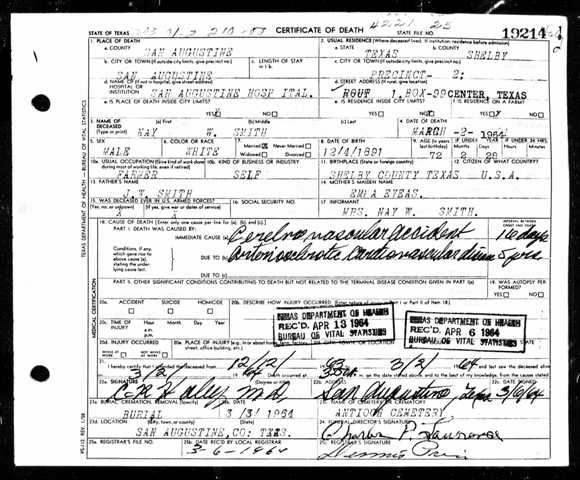 STATE OF TEXAS
CERTIFICATE OF DEATH
STATE FILE NO. 19214
1. PLACE OF DEATH
2. USUAL RESIDENCE (Where deceased lived. If institution: residence before admission)
a. COUNTY
SAN AUGUSTINE
a. STATE
TEXAS
b. COUNTY
SHELBY
b. CITY OR TOWN (If outside city limits, give precinct no.)
c. LENGTH OF STAY
c. CITY OR TOWN (If outside city limits, give precinct no.)
SAN AUGUSTINE
PRECINCT- 2:
d. NAME OF (If not in hospital, give street address)
HOSPITAL OR
INSTITUTION
SAN AUGUSTINE HOSP ITAL.
d. STREET ADDRESS (If rural, give location)
ROUT 1.BOX-99CENTER, TEXAS
e. IS PLACE OF DEATH INSIDE CITY LIMITS?
e. IS RESIDENCE INSIDE CITY LIMITS?
f. IS RESIDENCE ON A FARM?
3. NAME OF
DECEASED
(Type or print)
(a) First
(b) Middle
(c) Last
4. DATE OF DEATH
W. SMITH
MARCH -2- 1964
5. SEX
6. COLOR OR RACE
7. Married
Never Married
Widowed
Divorced
8. DATE OF BIRTH
9. AGE (In years last birthday)
IF UNDER 1 YEAR
IF UNDER 24 HRS
MALE
WHITE
12/4/1891
72
28
10a. USUAL OCCUPATION (Give kind of work done during most of working life, even if retired)
10b. KIND OF BUSINESS OR INDUSTRY
11. BIRTHPLACE (State or foreign country)
12. CITIZEN OF WHAT COUNTRY?
FARMER
SELF
SHELBY COUNTY TEXAS
U.S.A.
13. FATHER'S NAME
14. MOTHER'S MAIDEN NAME
J.T. SMITH
15. WAS DECEASED EVER IN U.S. ARMED FORCES?
16. SOCIAL SECURITY NO.
17. INFORMANT
MRS. NAY W. SMITH.
18. CAUSE OF DEATH [Enter only one cause per line for (a), (b), and (c).]
PART I. DEATH WAS CAUSED BY:
IMMEDIATE CAUSE (a)
Cerebro vascular accident
Conditions, if any,
which gave rise to
above cause (a),
stating the under-
lying cause last.
DUE TO (b)
Arteriosclerotic Cardiovascular disease
5 yrs
DUE TO (c)
PART II. OTHER SIGNIFICANT CONDITIONS CONTRIBUTING TO DEATH BUT NOT RELATED TO THE TERMINAL DISEASE CONDITION GIVEN IN PART I(a)
19. WAS AUTOPSY PERFORMED?
20a. ACCIDENT
SUICIDE
HOMICIDE
20b. DESCRIBE HOW INJURY OCCURRED. (Enter nature of injury in Part I or Part II of Item 18.)
20c. TIME OF
INJURY
Hour
Month
Day
Year
a.m.
p.m.
TEXAS DEPARTMENT OF HEALTH
REC'D. APR 13 1964
BUREAU OF VITAL STATISTICS
TEXAS DEPARTMENT OF HEALTH
REC'D. APR 6 1964
BUREAU OF VITAL STATISTICS
20d. INJURY OCCURRED
20e. PLACE OF INJURY
21. I hereby certify that I attended the deceased from
12/2/
63
3/2/
64
3/2/
64
22a. SIGNATURE
(Degree or title)
22b. ADDRESS
22c. DATE SIGNED
M.D.
San Augustine, Texas
3/6/64
23a. BURIAL, CREMATION, REMOVAL (Specify)
23b. DATE
23c. NAME OF CEMETERY OR CREMATORY
BURIAL
3/3/1964
ANTIOCH CEMETERY
23d. LOCATION
(City, town, or county)
(State)
24. FUNERAL DIRECTOR'S SIGNATURE
SAN AUGUSTINE,CO: TEXS.
25a. REGISTRAR'S FILE NO.
25b. DATE REC'D BY LOCAL REGISTRAR
25c. REGISTRAR'S SIGNATURE
3-6-1964
TEXAS DEPARTMENT OF HEALTH—BUREAU OF VITAL STATISTICS
MEDICAL CERTIFICATION